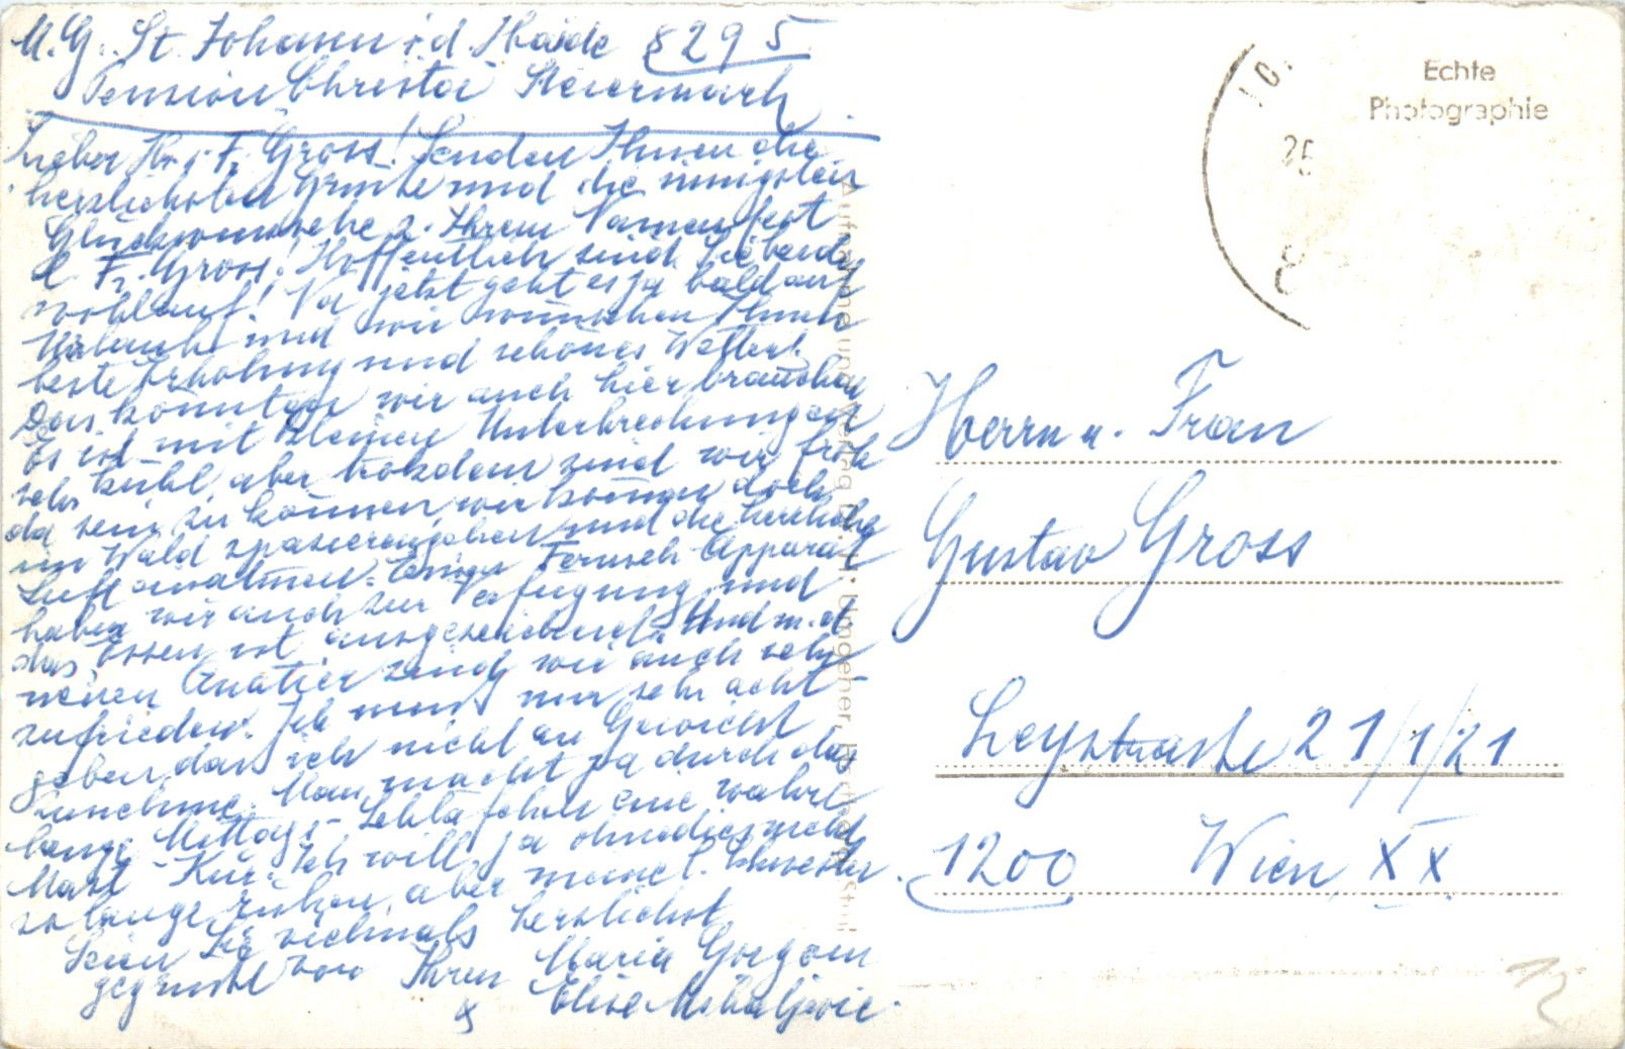 St. Johann i. d. Haide 8295
Pension Christa Steiermark
Lieber Hr. u. Fr. Gross! Senden Ihnen die
herzlichsten Grüsse und die innigsten
Glückwünsche z. Ihrem Namensfest
Fr. Gross! Hoffentlich sind Sie beide
wohlauf! Na jetzt geht es ja bald auf
Urlaub und wir wünschen Ihnen
beste Erholung und schönes Wetter.
Das könnten wir auch hier brauchen
Es ist mit kleinen Unterbrechungen
sehr kühl, aber trotzdem sind wir froh
da sein zu können, wir können doch
im Wald spazierengehen und die herrliche
Luft einatmen. Fernseh-Apparat
haben wir auch zur Verfügung und
das Essen ist ausgezeichnet. Und m. d.
neuen Quatier sind wir auch sehr
zufrieden. Ich muss nur sehr acht-
geben, das ich nicht an Gewicht
zunehme. Man macht ja durch das
lange Mittags-Schläfchen eine wahre
Mast-Kur. Ich will ja ohnedies nicht
so lange ruhen, aber meine l. Schwester.
Seien Sie vielmals herzlichst
gegrüsst von Ihren Maria
& Elise Mihaljevic.
Echte
Photographie
25
8
Herrn u. Frau
Gustav Gross
Leystrasse 21/1/21
1200 Wien XX
12